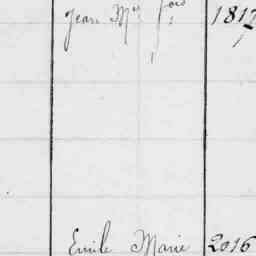 Jean Mie fois 1817
Emile Marie 2016